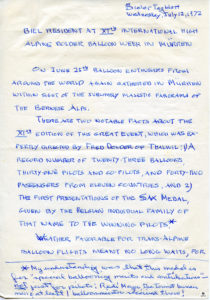 Bieler Tagblatt
Wednesday, July 12, 1972
BIEL RESIDENT AT XIth INTERNATIONAL HIGH
ALPINE DOLDER BALLOON WEEK IN MURREN
ON JUNE 25th BALLOON ENTHUSIASTS FROM
AROUND THE WORLD AGAIN GATHERED IN MURREN
WITHIN SIGHT OF THE SUBLIMELY MAJESTIC PANORAMA OF
THE BERNESE ALPS.
THERE ARE TWO NOTABLE FACTS ABOUT THE
XIth EDITION OF THIS GREAT EVENT, WHICH WAS EX-
PERTLY DIRECTED BY FRED DOLDER OF THALWIL: 1) A
RECORD NUMBER OF TWENTY-THREE BALLOONS,
THIRTY-ONE PILOTS AND CO-PILOTS, AND FORTY-TWO
PASSENGERS FROM ELEVEN COUNTRIES, AND 2)
THE FIRST PRESENTATIONS OF THE SAX MEDAL,
GIVEN BY THE BELGIAN INDUSTRIAL FAMILY OF
THAT NAME TO THE WINNING PILOTS*
WEATHER FAVORABLE FOR TRANS-ALPINE
BALLOON FLIGHTS MEANT NO LONG WAITS, FOR
*My understanding was that this medal is
for "special ballooning merits and contributions"
not just for pilots;
at least) ballooning